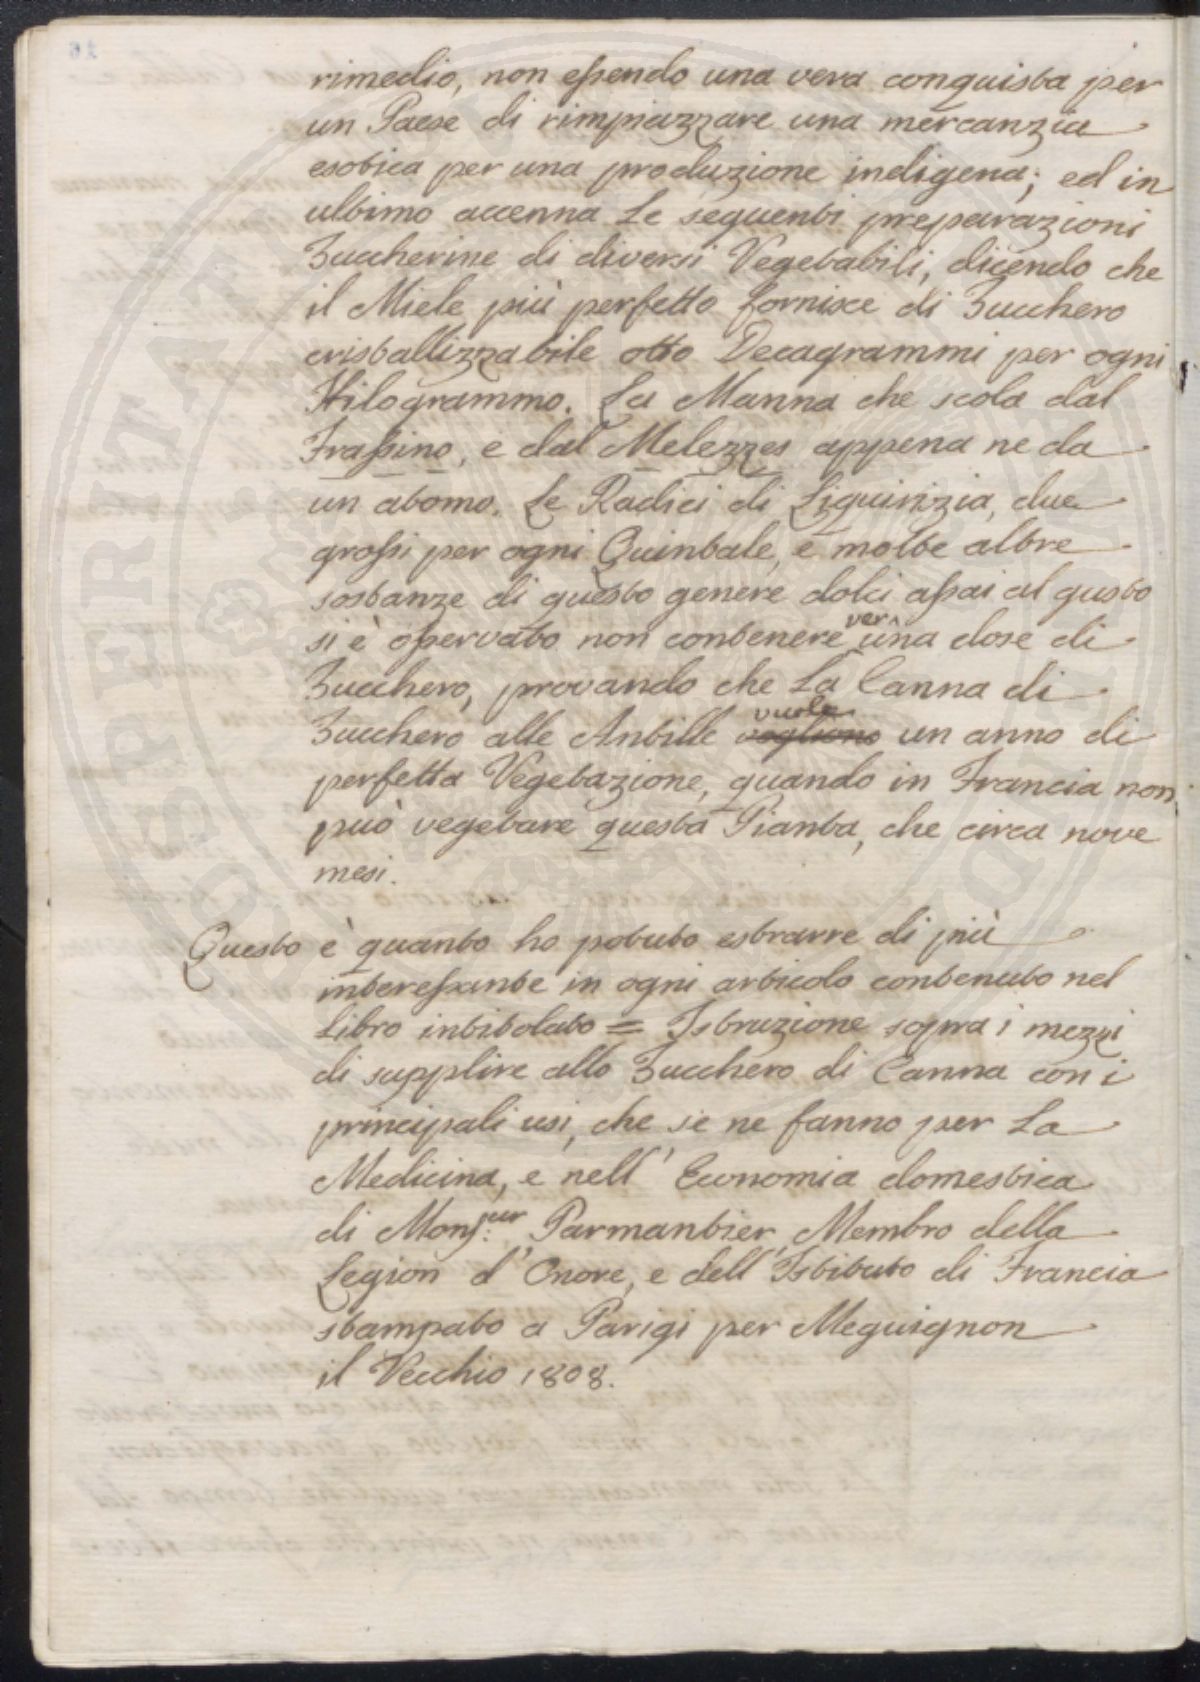 rimedio, non essendo una vera conquista per
un Paese di rimpiazzare una mercanzia
esotica per una produzione indigena; ed in
ultimo accenna le seguenti preparazioni
Zuccherine di diversi Vegetabili, dicendo che
il Miele più perfetto fornisce di Zucchero
cristallizzabile otto Decagrammi per ogni
Kilogrammo. La Manna che scola dal
Frassino, e dal Melezzes appena ne da
un atomo. Le Radici di Liquirizia, due
grossi per ogni Quintale, e molte altre
sostanze di questo genere dolci assai al gusto
si è osservato non contenere veruna dose di
Zucchero, provando che la Canna di
Zucchero alle Antille vogliono vuole un anno di
perfetta Vegetazione, quando in Francia non
può vegetare questa Pianta, che circa nove
mesi.
Questo è quanto ho potuto estrarre di più
interessante in ogni articolo contenuto nel
Libro intitolato = Istruzione sopra i mezzi
di supplire allo Zucchero di Canna con i
principali usi, che se ne fanno per la
Medicina, e nell' Economia domestica
di Mons.ieur Parmantier, Membro della
Legion d' Onore, e dell' Istituto di Francia
stampato a Parigi per Meguignon
il Vecchio 1808.